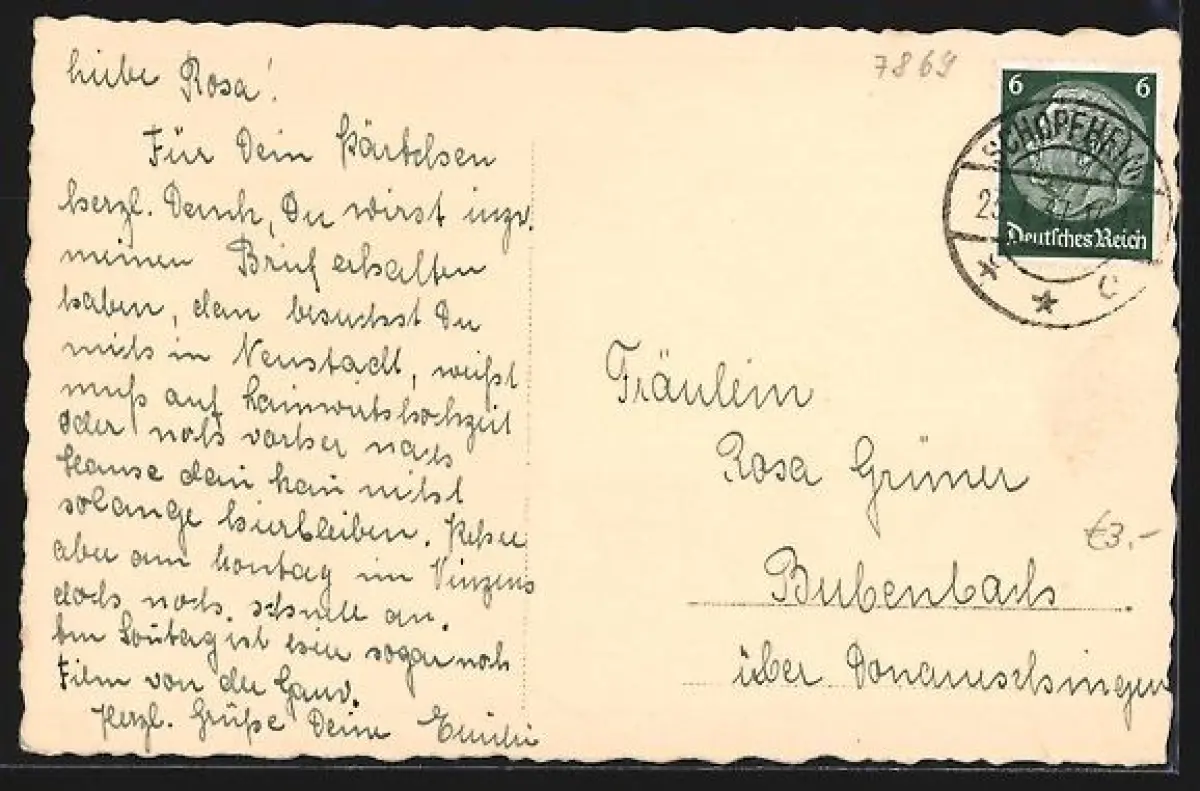 Liebe Rosa!
Für Dein Kärtchen
herzl. Dank, Du wirst inzw.
meinen Brief erhalten
haben, dan besuchst Du
mich in Neustadt, weißt
muß auf
oder noch vorher nach
Hause dan kan nicht
solange hierbleiben.
aber am Montag im Vinzens
doch noch schnell an.
Am Sontag ist hier sogar noch
Film von der
Herzl. Grüße Deine Emilie
7869
6 6
SCHOPFHEIM
23.
Deutsches Reich
c
Fräulein
Rosa Grüner
€3,-
Bubenbach
über Donaueschingen